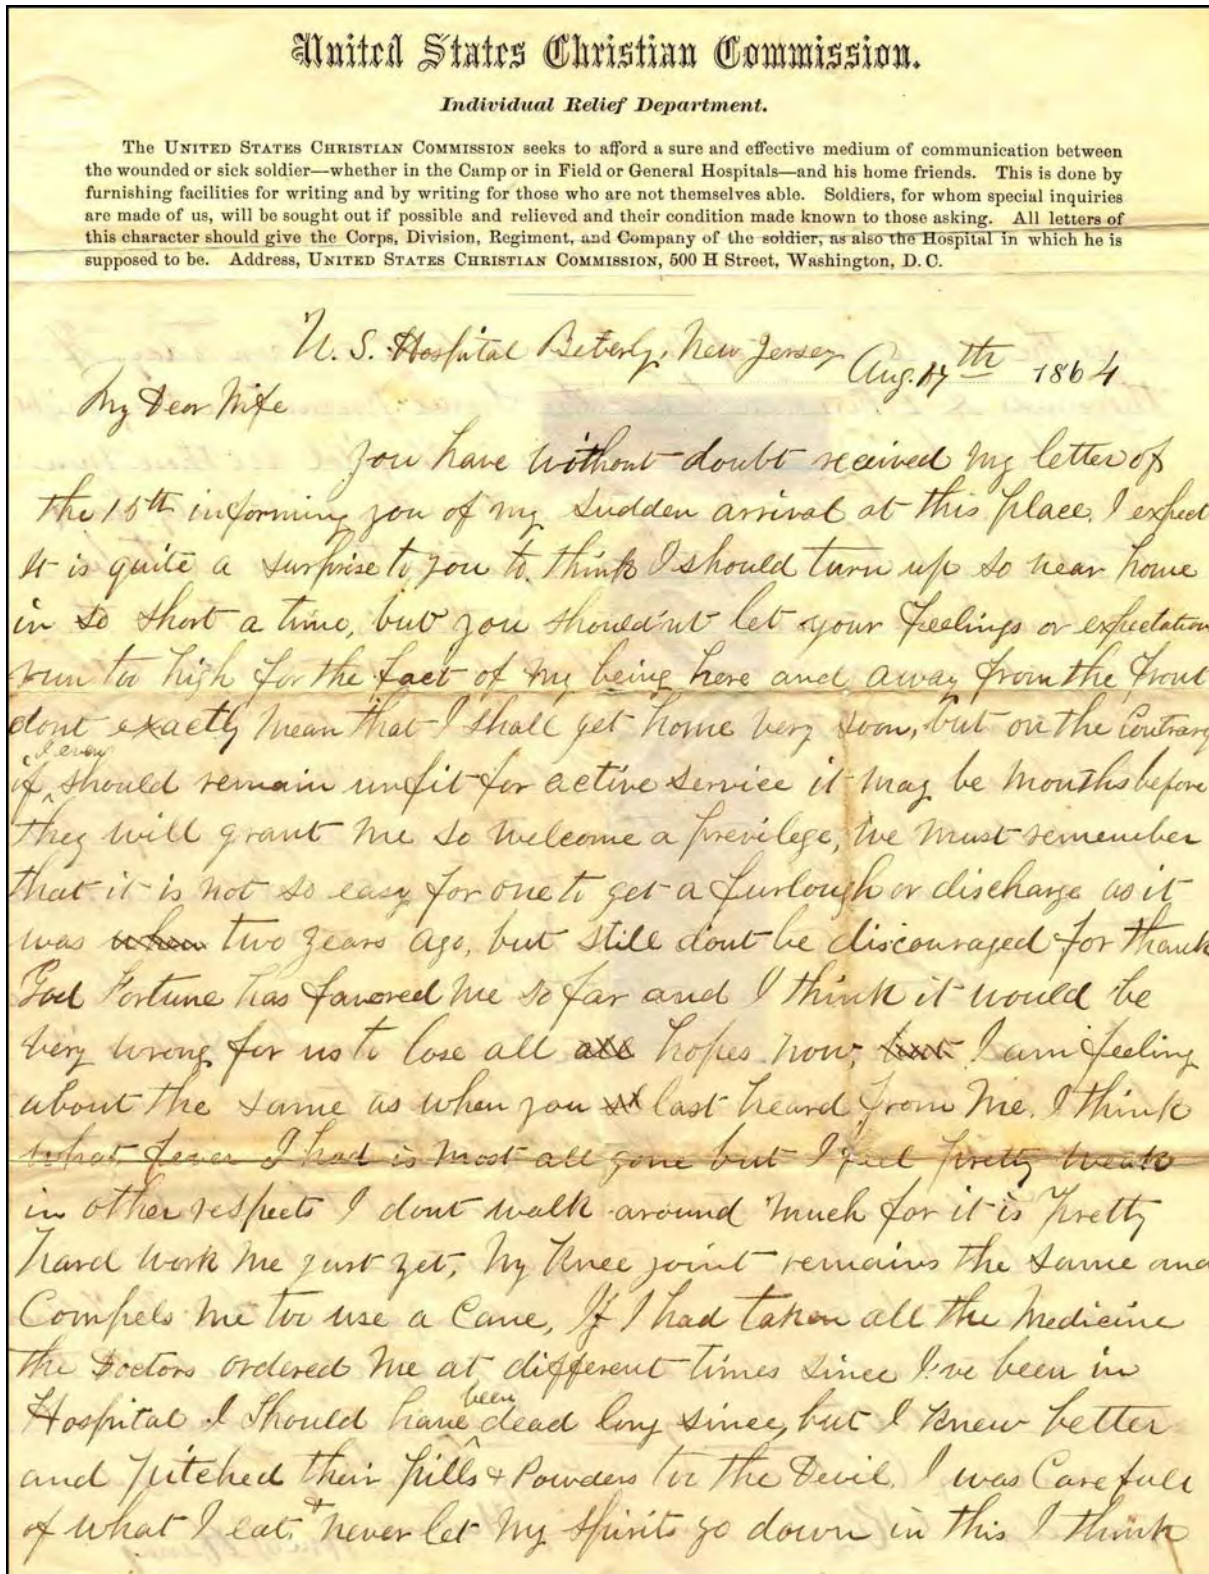 United States Christian Commission.
Individual Relief Department.
The UNITED STATES CHRISTIAN COMMISSION seeks to afford a sure and effective medium of communication between
the wounded or sick soldier—whether in the Camp or in Field or General Hospitals—and his home friends. This is done by
furnishing facilities for writing and by writing for those who are not themselves able. Soldiers, for whom special inquiries
are made of us, will be sought out if possible and relieved and their condition made known to those asking. All letters of
this character should give the Corps, Division, Regiment, and Company of the soldier, as also the Hospital in which he is
supposed to be. Address, UNITED STATES CHRISTIAN COMMISSION, 500 H Street, Washington, D. C.
U. S. Hospital Beverly, New Jersey Aug. 17th 1864
My Dear Wife
you have without doubt received my letter of
the 15th informing you of my sudden arrival at this place, I expect
it is quite a surprise to you to think I should turn up so near home
in so short a time, but you should'nt let your feelings or expectation
run too high for the fact of my being here and away from the front
dont exactly mean that I shall get home very soon, but on the Contrary
if I even should remain unfit for active service it may be months before
they will grant me so welcome a previlege, we must remember
that it is not so easy for one to get a furlough or discharge as it
was when two years ago, but still dont be discouraged for thank
God Fortune has favored me so far and I think it would be
very wrong for us to lose all all hopes now, but I am feeling
about the same as when you last heard from me, I think
what fever I had is most all gone but I feel pretty weak
in other respects I dont walk around much for it is pretty
hard work me just yet, my Knee joint remains the same and
Compels me too use a Cane, If I had taken all the Medicine
the Doctors ordered me at different times since I've been in
Hospital I should have been dead long since, but I knew better
and pitched their pills & Powders too the Devil, I was Carefull
of what I eat, & never let my spirits go down in this I think